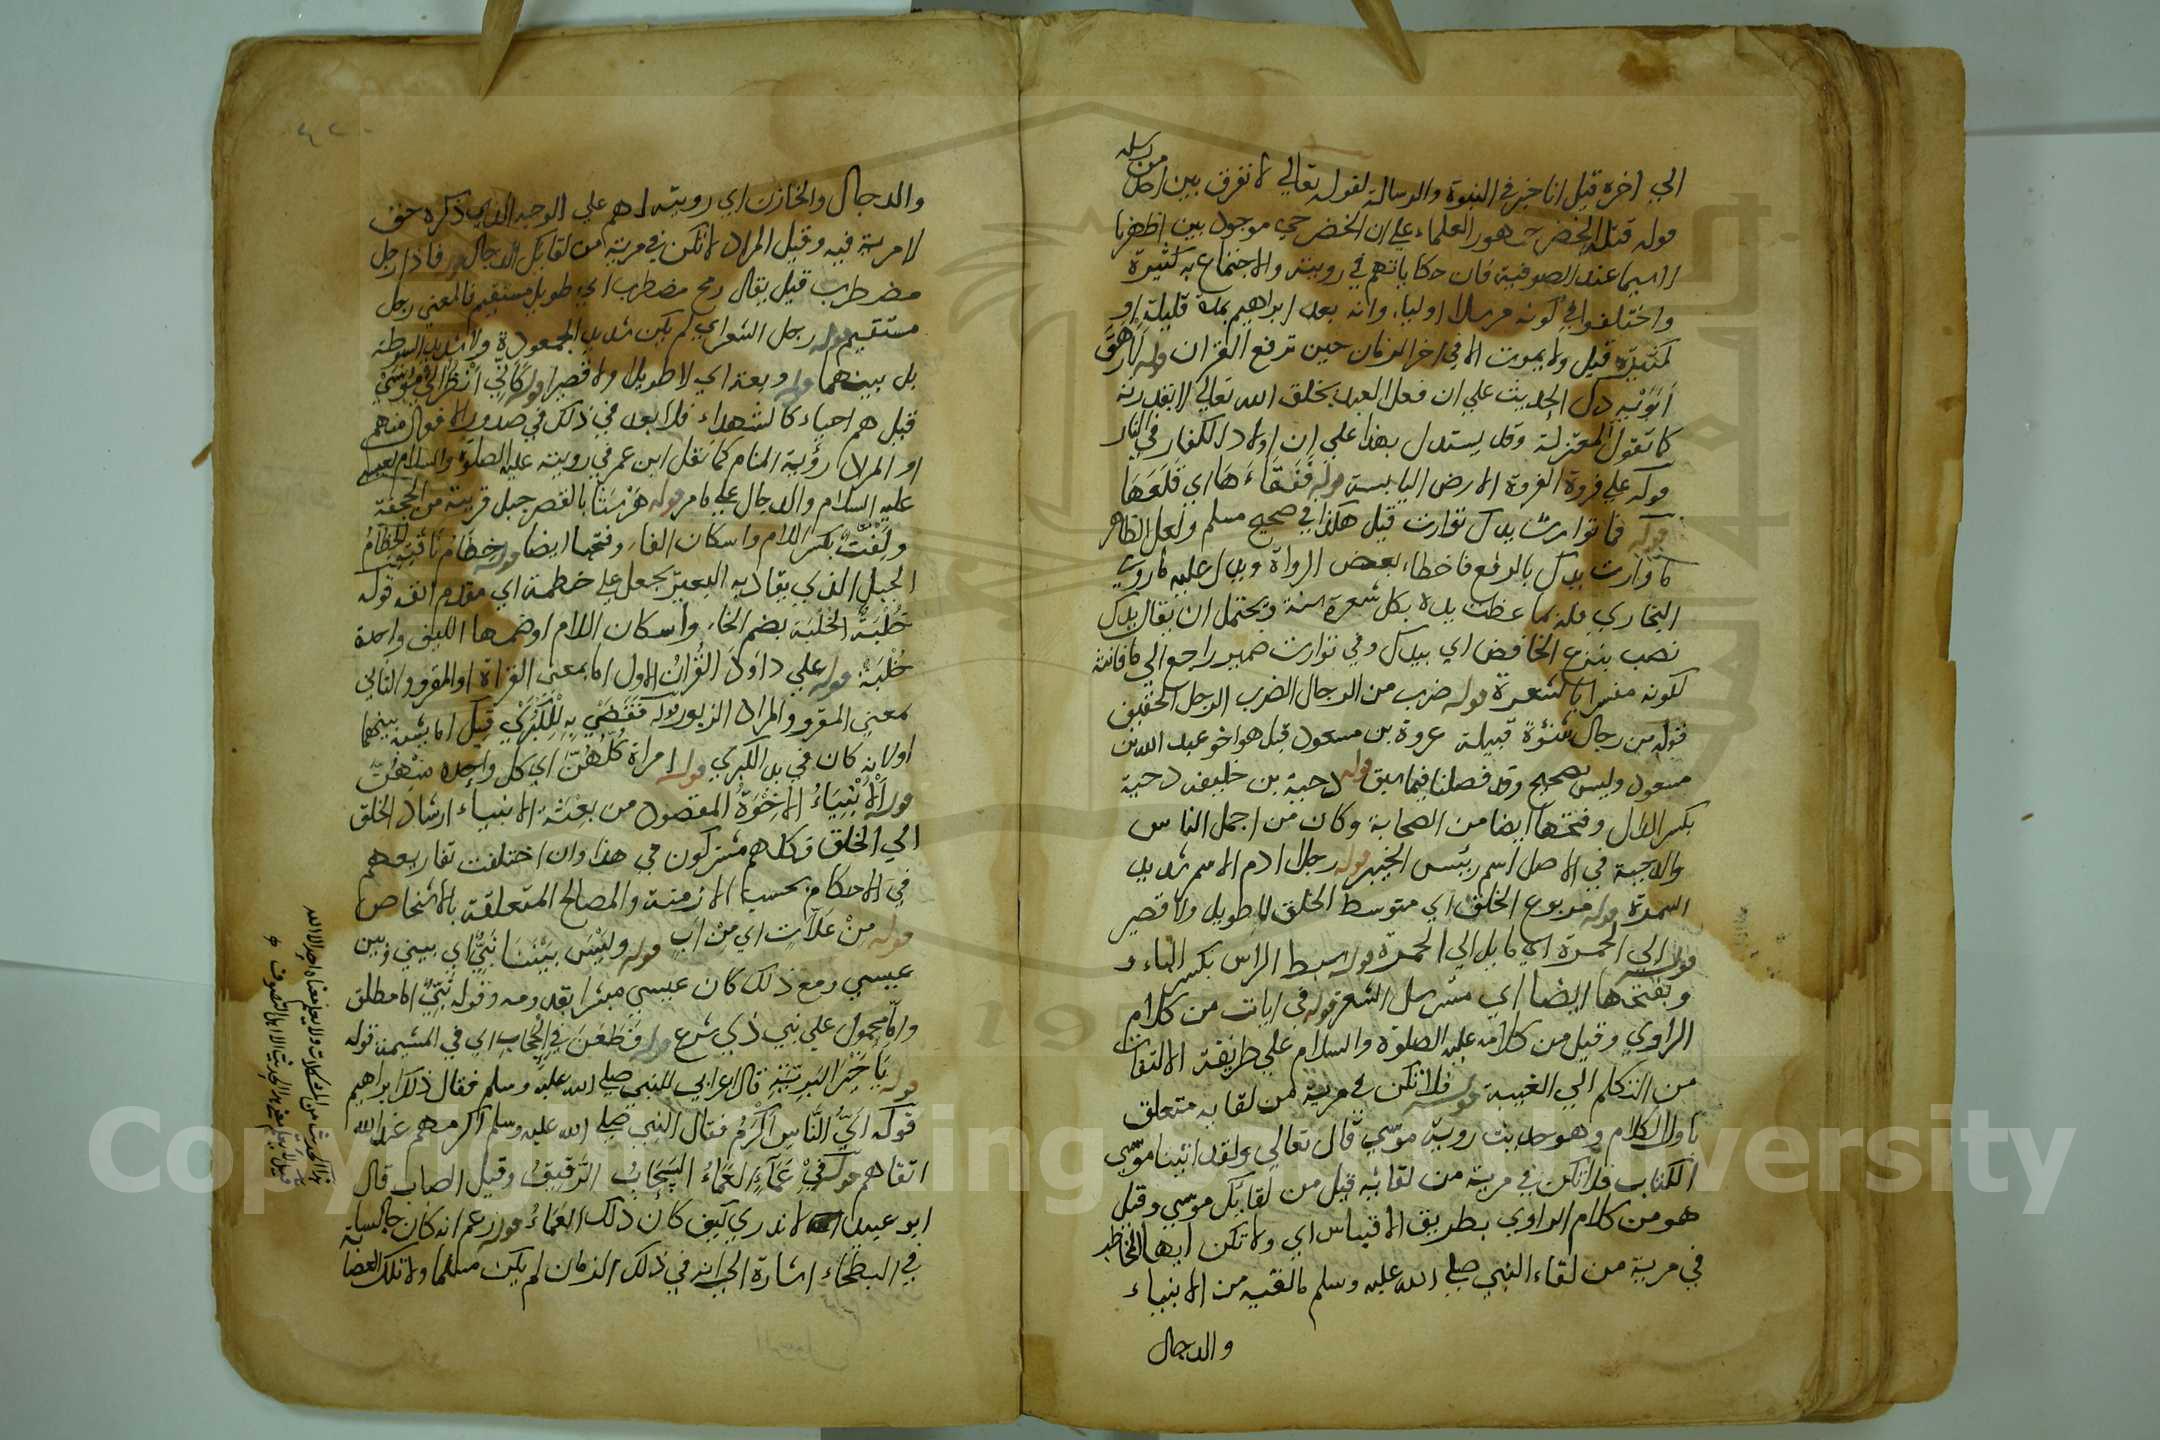 الي اخره قيل انا خير في النبوة والرسالة لقوله تعالي لا نفرق بين احد من رسله
قوله قتله الخضر جمهور العلماء علي ان الخضر حي موجود بين اظهرنا
لا سيما عند الصوفية فان حكاياتهم في رويته والاجتماع به كثيرة
واختلفوا في كونه مرسلا او ليا وانه بعد ابراهيم بمدة قليلة او
كثيرة قيل ولا يموت الا في اخر الزمان حين ترفع القران قوله لارهق
ابويه دل الحديث علي ان فعل العبد بخلق الله تعالي لا بقدرته
كما تقول المعتزلة وقد يستدل بهذا علي ان اولاد الكفار في النار
قوله علي فروة الفروة الارض اليابسة قوله ففقاءها اي قلعها
قوله فما توارت يدك توارت قيل هكذا في صحيح مسلم ولعل الظاهر
ما وارت يدك بالرفع فاخطاء بعض الرواة ويدل عليه ما روي
البخاري فله بما غطت يده بكل شعرة سنة ويحتمل ان يقال يدك
نصب بنزع الخافض اي بيدك وفي توارت ضمير راجع الي ما فانثه
لكونه مفسرا بالشعرة قوله ضرب من الرجال الضرب الرجل الخفيف
قوله من رجال شنوءة قبيلة عروة بن مسعود قيل هو اخو عبد الله بن
مسعود وليس بصحيح وقد فصلنا فيما سبق قوله دحية بن خليفة دحية
بكسر الدال وفتحها ايضا من الصحابة وكان من اجمل الناس
والدحية في الاصل اسم رئيس الخيبر قوله رجلا ادم الاسمر شديد
السمرة قوله مربوع الخلق اي متوسط الخلق لا طويل ولا قصير
قوله الي الحمرة اي مايل الي الحمرة قوله سبط الراس بكسر الباء و
وبفتحها ايضا اي مسترسل الشعر قوله في ايات من كلام
الراوي وقيل من كلامه عليه الصلوة والسلام علي طريقة الالتفات
من التكلم الي الغيبة قوله فلا تكن في مرية من لقايه متعلق
باول الكلام وهو حديث روية موسي قال تعالي ولقد اتينا موسي
الكتاب فلا تكن في مرية من لقائه قيل من لقائك موسي وقيل
هو من كلام الراوي بطريق الاقتباس اي ولا تكن ايها المخاطب
في مرية من لقاء النبي صلي الله عليه وسلم ما لقيه من الانبياء
والدجال
والدجال والخازن اي رويته لهم علي الوجه الذي ذكره حق
لا مرية فيه وقيل المراد لا تكن في مرية من لقائك الدجال قوله فاذا رجل
مضطرب قيل يقال رمح مضطرب اي طويل مستقيم فالمعني رجل
مستقيم قوله رجل الشعر اي لم يكن شديد الجعودة ولا شديد السبوطة
بل بينهما قوله ربعة اي لا طويل ولا قصير قوله كاني انظر الي موسي
قيل هم احياء كالشهداء فلا بعد في ذلك في صدور الافعال منهم
او المراد رؤية المنام كما نقل ابن عمر في رويته عليه الصلوة والسلام لعيسي
عليه السلام والدجال علي ما مر قوله هرشا بالقصر جبل قريبة من الجحفة
ولفت بكسر اللام واسكان الفاء وفتحها ايضا قوله خطام ناقته الخطام
الحبل الذي يقاد به البعير يجعل علي خطمه اي مقدم انفه قوله
خلبة الخلبة بضم الخاء واسكان اللام او ضمها الليف واحدة
خلبة قوله علي داود القران الاول اما بمعني القراة او المقرو والثاني
بمعني المقرو والمراد الزبور قوله فقضي به للكبري قيل اما بشبه بينهما
او لانه كان في يد الكبري قوله امراة كلهن اي كل واحدة منهن
قوله الانبياء الاخوة المقصود من بعثة الانبياء ارشاد الخلق
الي الخلق وكلهم مشتركون في هذا وان اختلفت تفاريعهم
في الاحكام بحسب الازمنة والمصالح المتعلقة بالاشخاص
قوله من علات اي من اب قوله وليس بيننا نبي اي بيني وبين
عيسي ومع ذلك كان عيسي مبشرا بقدومه وقوله نبي اما مطلق
واما محمول علي نبي ذي شرع قوله فطعن في الحجاب اي في المشيمة قوله
قوله يا خير البرية قال اعرابي للنبي صلي الله عليه وسلم فقال ذلك ابراهيم
قوله اي الناس اكرم فقال النبي صلي الله عليه وسلم اكرمهم عند الله
اتقاهم قوله في عماء العماء السحاب الرقيق وقيل الضباب قال
ابو عبيد لا ندري كيف كان ذلك العماء قوله زعم انه كان جالسا
في البطحاء اشارة الي انه في ذلك الزمان لم يكن مسلما ولا تلك
هذا الحديث من المشكلات ولا يعلم معناه احد الا الله